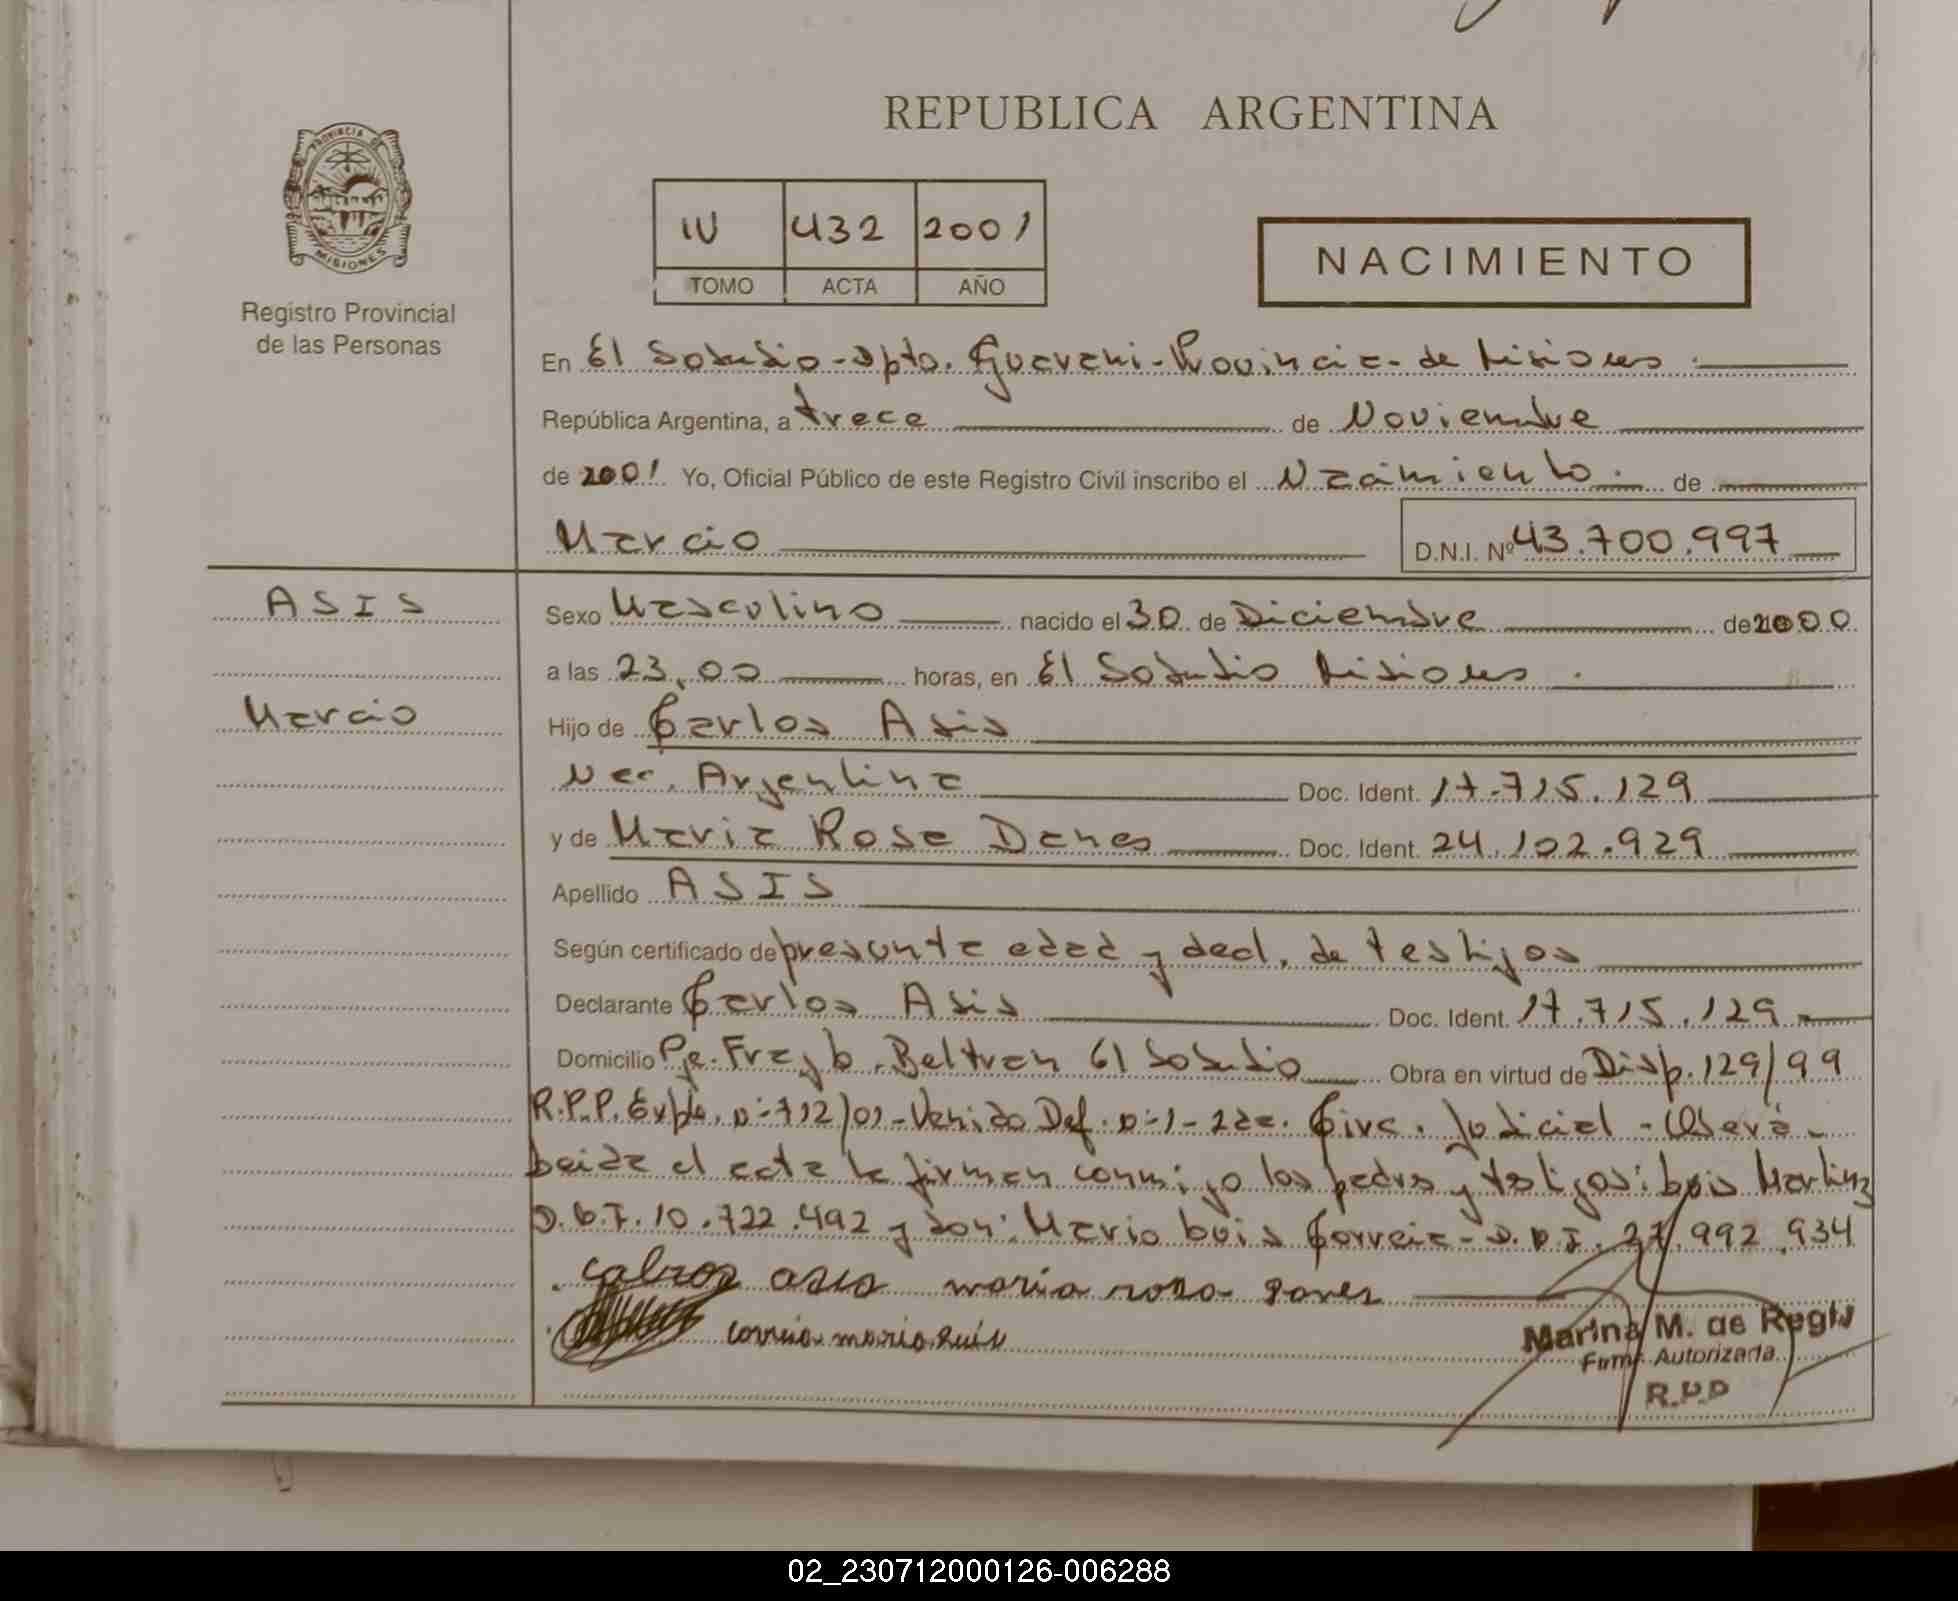 REPUBLICA ARGENTINA
PROVINCIA DE
MISIONES
Registro Provincial
de las Personas
IV 432 2001
TOMO ACTA AÑO
NACIMIENTO
En El Soberbio - Dpto. Guarani - Provincia - de Misiones.
República Argentina, a trece de Noviembre
de 2001 Yo, Oficial Público de este Registro Civil inscribo el Nacimiento. de
Marcio D.N.I. Nº 43.700.997
ASIS
Sexo Masculino nacido el 30 de Diciembre de 2000
a las 23,00 horas, en El Soberbio Misiones.
Marcio
Hijo de Carlos Asis
Nac. Argentina Doc. Ident. 17.715.129
y de Maria Rosa Danes Doc. Ident. 24.102.929
Apellido ASIS
Según certificado de presunta edad y decl. de testigos
Declarante Carlos Asis Doc. Ident. 17.715.129
Domicilio Pje. Fray L. Beltran El Soberbio Obra en virtud de Disp. 129/99
R.P.P. Expte. nº 712/01 - Venido Def. nº 1 - 2da. Circ. Judicial - Oberá -
Leida el acta la firman conmigo los padres y testigos: Luis Martinez
D.N.I. 10.722.492 y don: Mario Luis Correia - D.N.I. 27.992.934
asis maria rosa Danes
correia mario Luis
Marina M. de Regis
Firma Autorizada
R.P.P
02_230712000126-006288